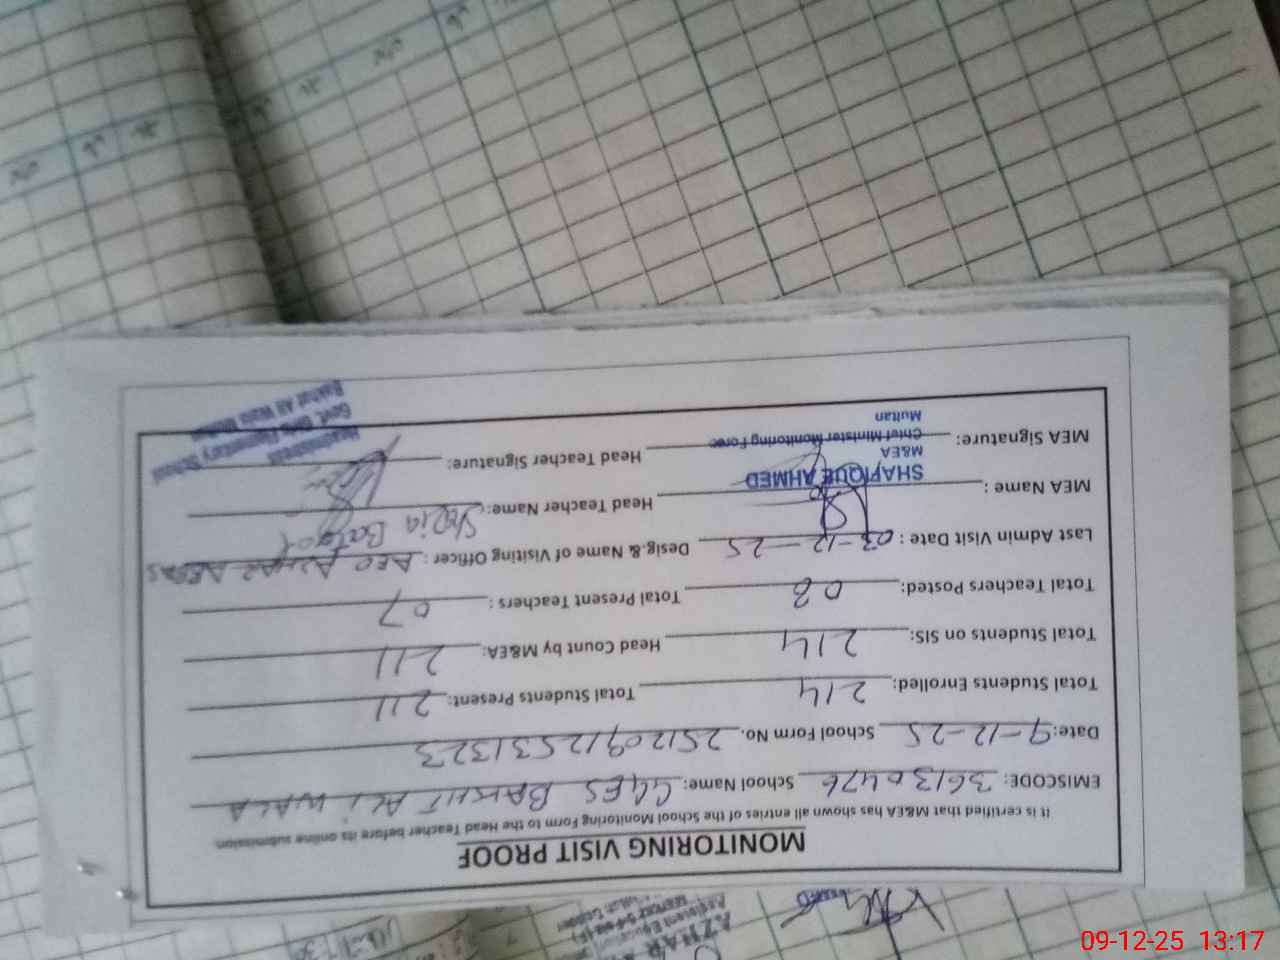 MONITORING VISIT PROOF
It is certified that M&EA has shown all entries of the School Monitoring Form to the Head Teacher before its online submission
EMISCODE: 36130476 School Name: GGES BAKHT ALI WALA
Date: 9-12-25 School Form No. 25120912531323
Total Students Enrolled: 214 Total Students Present: 211
Total Students on SIS: 214 Head Count by M&EA: 211
Total Teachers Posted: 08 Total Present Teachers : 07
Last Admin Visit Date : 03-12-25 Desig.& Name of Visiting Officer : AEO AZHAR
MEA Name : Head Teacher Name: Batool
SHAFIQUE AHMED
M&EA
Chief Minister Monitoring Force
Multan
MEA Signature: Head Teacher Signature:
Headmistress
Govt. Girls Elementary School
Bakhat Ali Wala Multan
AZHAR
09-12-25 13:17